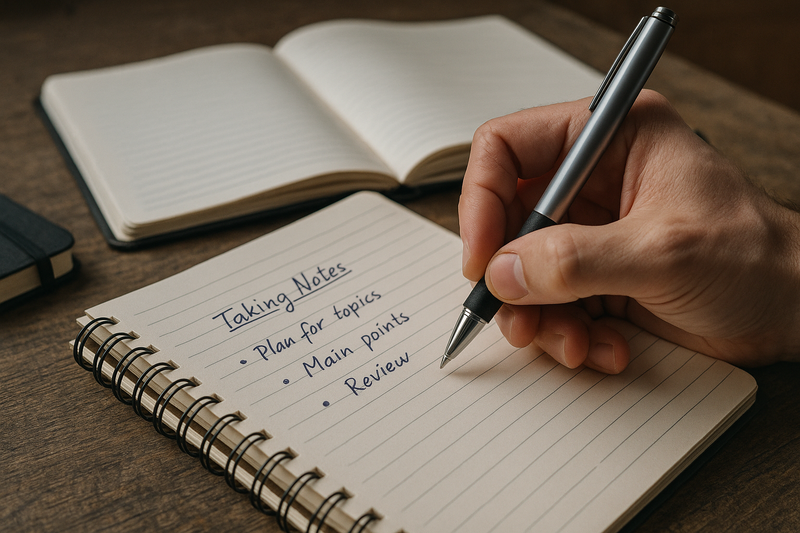 Taking Notes
• Plan for topics
• Main points
• Review